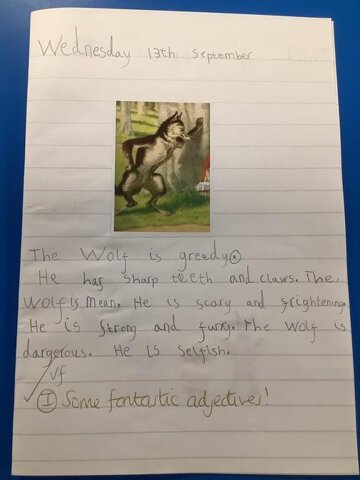 Wednesday 13th September
The Wolf is greedy.
He has sharp teeth and claws. The
Wolf is mean. He is scary and frightening.
He is strong and furry. The Wolf is
dangerous. He is selfish.
✓ Vf
I Some fantastic adjectives!